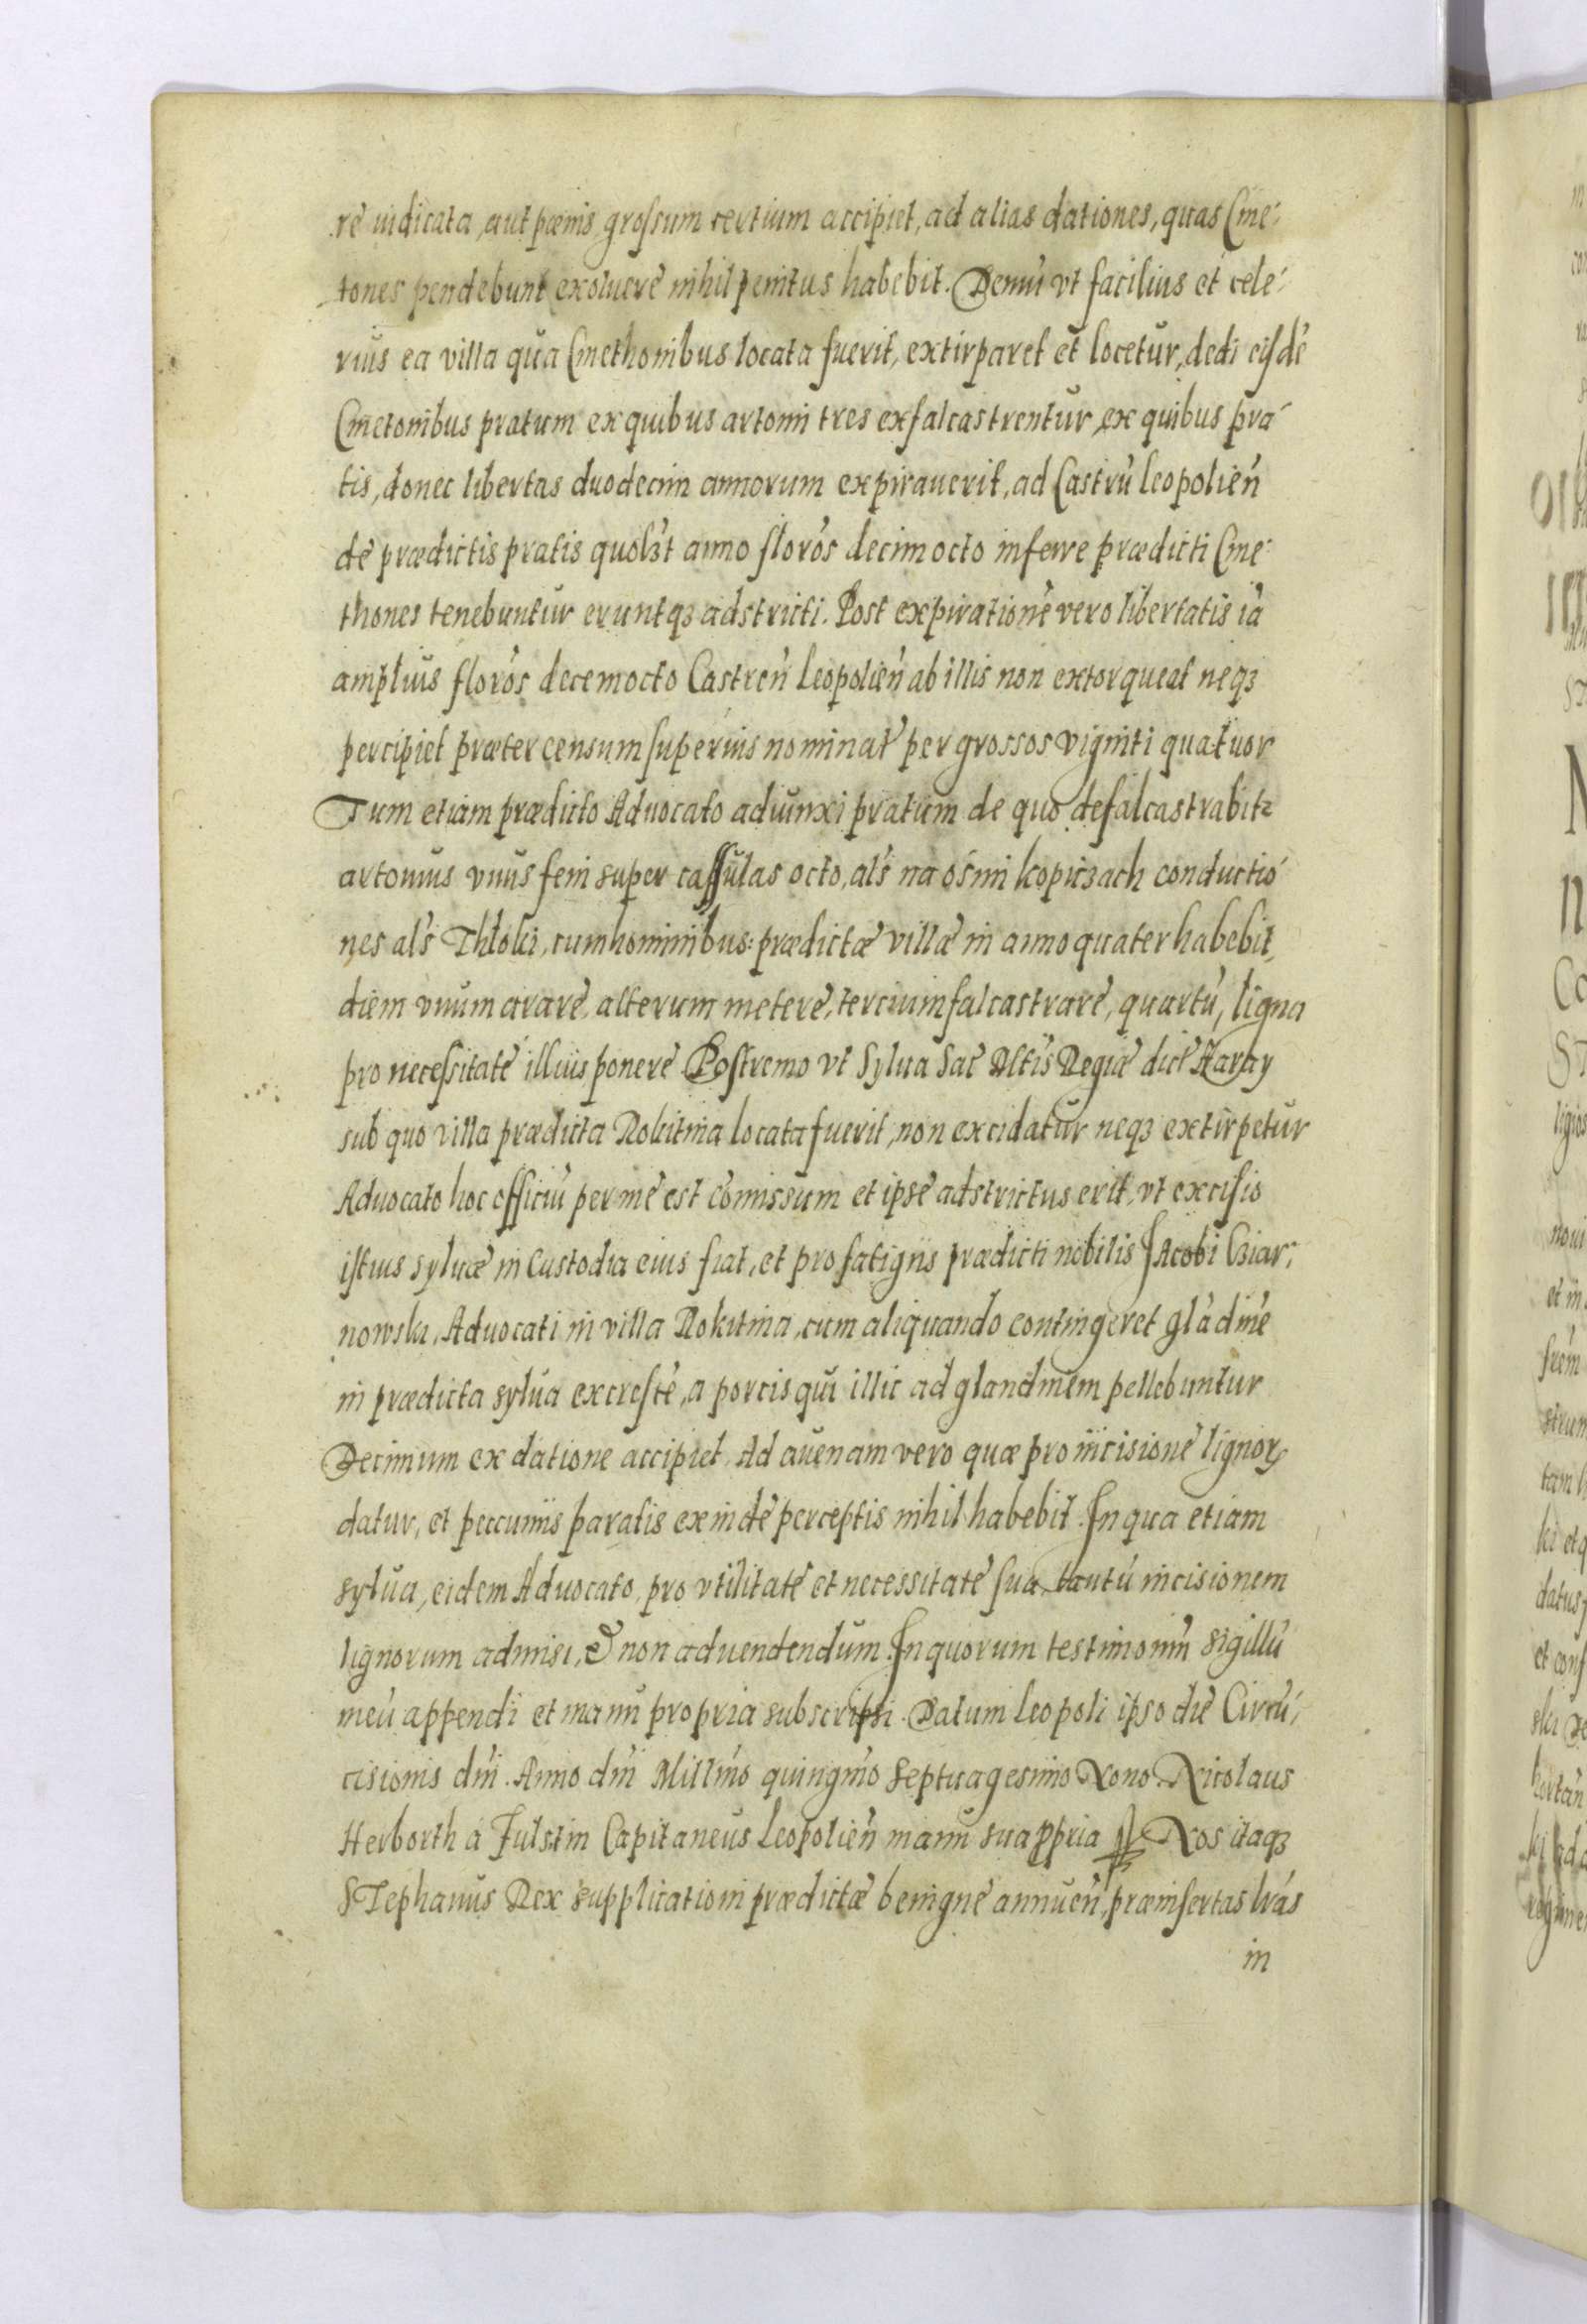 re iudicata, aut pœnis grossum tertium accipiet, ad alias dationes, quas Cme-
tones pendebunt exoluere nihil penitus habebit. Demũ vt facilius et cele-
rius ea villa qua Cmethonibus locata fuerit, extirparet et locetur, dedi eisdẽ
Cmetonibus pratum ex quibus artomi tres exfalcastrentur, ex quibus pra-
tis, donec libertas duodecim annorum expirauerit, ad Castrũ Leopolień
de prædictis pratis quolꝫt anno florós decimocto inferre prædicti Cme-
thones tenebuntur eruntqꝫ adstricti. Post expirationẽ vero libertatis iã
amplius florós decemocto Castreń Leopolień ab illis non extorqueat neqꝫ
percipiet præter censum superius nominat per grossos viginti quatuor
Tum etiam prædicto Aduocato adiunxi pratum de quo defalcastrabitr
artomus vnus feni super cassulas octo, als na ośmi kopiczach conductio-
nes als Thłoki, cum hominibus: prædictæ villæ in anno quater habebit,
diem vnum arare, alterum metere, tercium falcastrare, quartũ, ligna
pro necessitate illius ponere Postremo vt Sylua Sac Mtis Regiæ dict Haray
sub quo villa prædicta Rokitnia locata fuerit, non excidatur neqꝫ extirpetur
Aduocato hoc officiũ per me est comissum et ipse adstrictus erit, vt excisio
istius syluæ in Custodia eius fiat, et pro fatigiis prædicti nobilis Jacobi Cziar-
nowski, Aduocati in villa Rokitnia, cum aliquando contingeret glãdinẽ
in prædicta sylua excrescẽ, a porcis qui illic ad glandinem pellebuntur
Decimum ex datione accipiet. Ad auenam vero quæ pro incisione lignorꝝ
datur, et pecuniis paratis exinde perceptis nihil habebit. In qua etiam
sylua, eidem Aduocato, pro vtilitate et necessitate sua, tantũ incisionem
lignorum admisi, & non aduendendum. In quorum testimoniũ sigillũ
meũ appendi et manu propria subscripsi. Datum Leopoli ipso die Circũ-
cisionis dńi. Anno dńi Millmo quingmo Septuagesimo Nono. Nicolaus
Herborth à Fulstin Capitaneus Leopolień manu sua ppria Nos itaqꝫ
STephanus Rex supplicationi prædictæ benigne annueń, præinsertas lrás
in